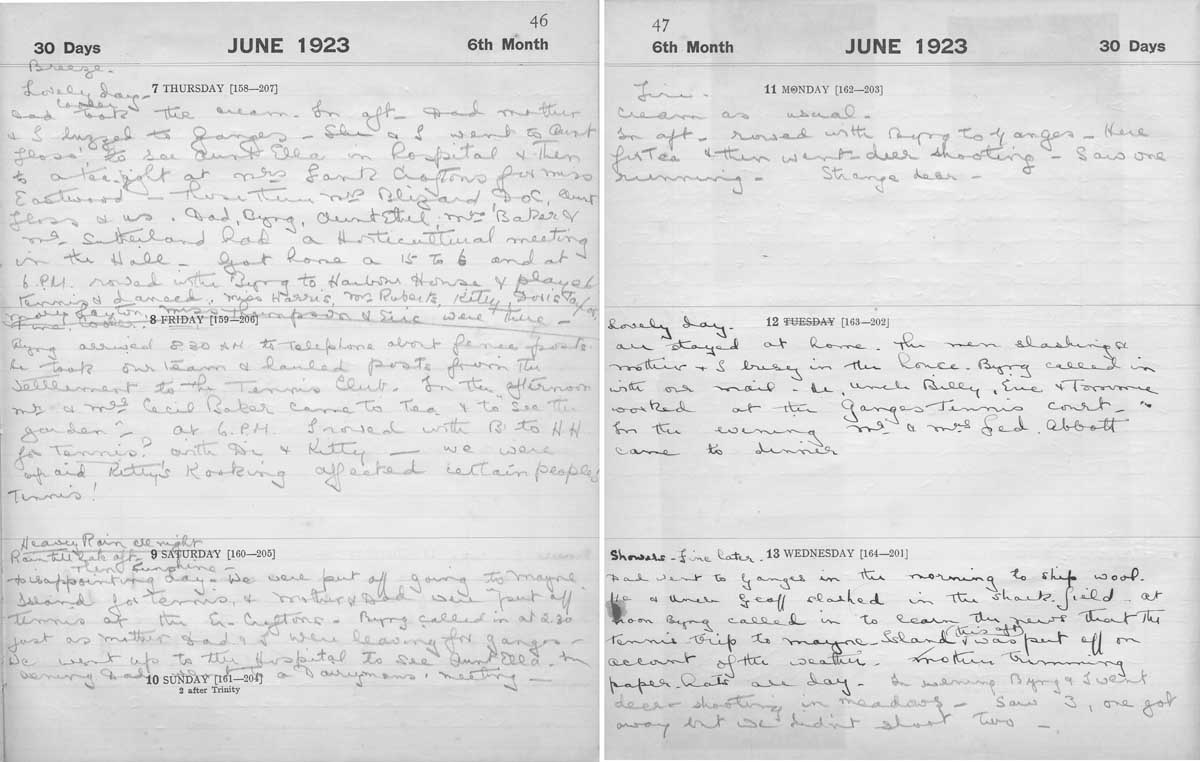 46
30 Days JUNE 1923 6th Month
Breeze.
Lovely day - 7 THURSDAY [158—207]
Dad took the cream. In aft. Dad mother
& I buzzed to Ganges - She & I went to Aunt
Floss', to see Aunt Ella in hospital & then
to a tea fight at Mrs Crofton's for Miss
Eastwood - those there Mrs Blizard DoC, Aunt
Floss & us. Dad, Byng, Aunt Ethel, Mrs Baker &
Mrs Sutherland had a Horticultural meeting
in the Hall - Got home a 15 to 6 and at
6 P.M. rowed with Byng to Harbour House & played
tennis & danced. Miss Harris, Mrs Roberts, Kitty,
Mary Layton, Thompson & Eric were there -
Fine. Cooler. 8 FRIDAY [159—206]
Byng arrived 8.30 AM to telephone about fence posts.
He took our team & hauled posts from the
Settlement to the Tennis Club. In the afternoon
Mr & Mrs Cecil Baker came to tea & to "see the
garden" - at 6. P.M. I rowed with B to H H
for tennis? with Di & Kitty — we were
afraid Kitty's Kooking affected certain people's
Tennis!
Heavy Rain all night
9 SATURDAY [160—205]
Then Sunshine -
Disappointing day - We were put off going to Mayne
Island for tennis, & Mother & Dad were put off
tennis at the Croftons - Byng called in at 2.30
just as mother Dad & I were leaving for Ganges -
We went up to the Hospital to see Aunt Ella. In
evening Dad 10 SUNDAY [161—204] a Dairymans' meeting -
2 after Trinity
47
6th Month JUNE 1923 30 Days
Fine - 11 MONDAY [162—203]
Cream as usual -
In aft - rowed with Byng to Ganges - Here
for Tea & then went deer shooting - Saw one
running - Strange deer -
Lovely day. 12 TUESDAY [163—202]
All stayed at home. The men slashing &
mother & I busy in the house. Byng called in
with our mail - He, Uncle Billy, Eric & Tommie
worked at the Ganges Tennis court -
In the evening Mr & Mrs Ged. Abbott
came to dinner
Showers - Fine later. 13 WEDNESDAY [164—201]
Dad went to Ganges in the morning to ship wool.
He & Uncle Geoff slashed in the Shack field. At
noon Byng called in to learn the news that the
tennis trip to Mayne Island (this aft) was put off on
account of the weather. Mother trimming
paper hats all day. In evening Byng & I went
deer shooting in meadows - Saw 3, one got
away but we didn't shoot two -